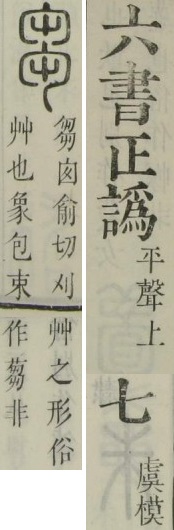 六書正譌
平聲上
七
虞模
芻囪俞切刈
艸也象包束
艸之形俗
作蒭非